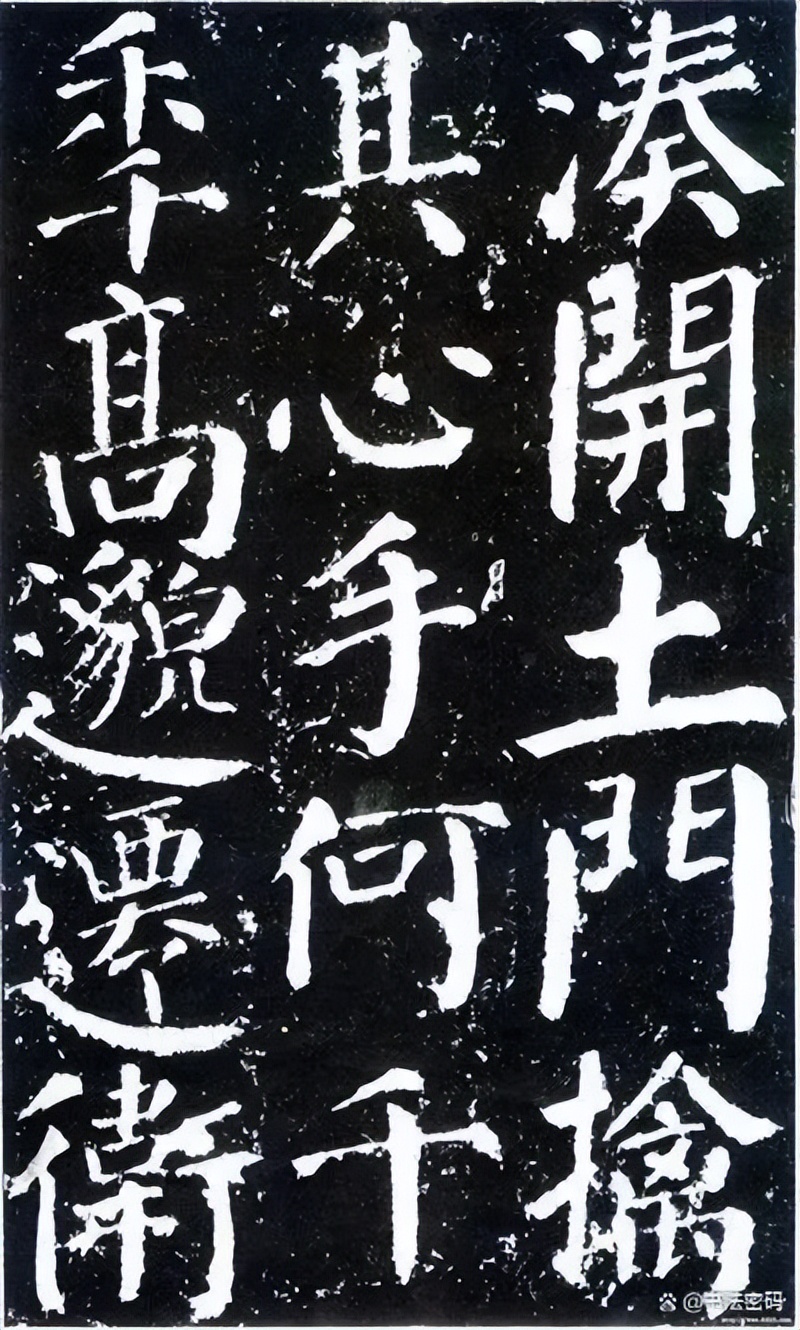 湊開土門擒
其心手何千
秊髙邈遷衛
@书法密码